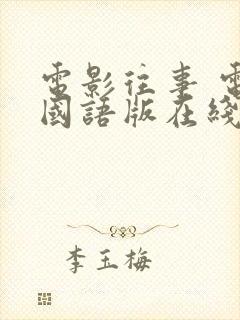 電影往事 電
國語版在綫
李玉梅